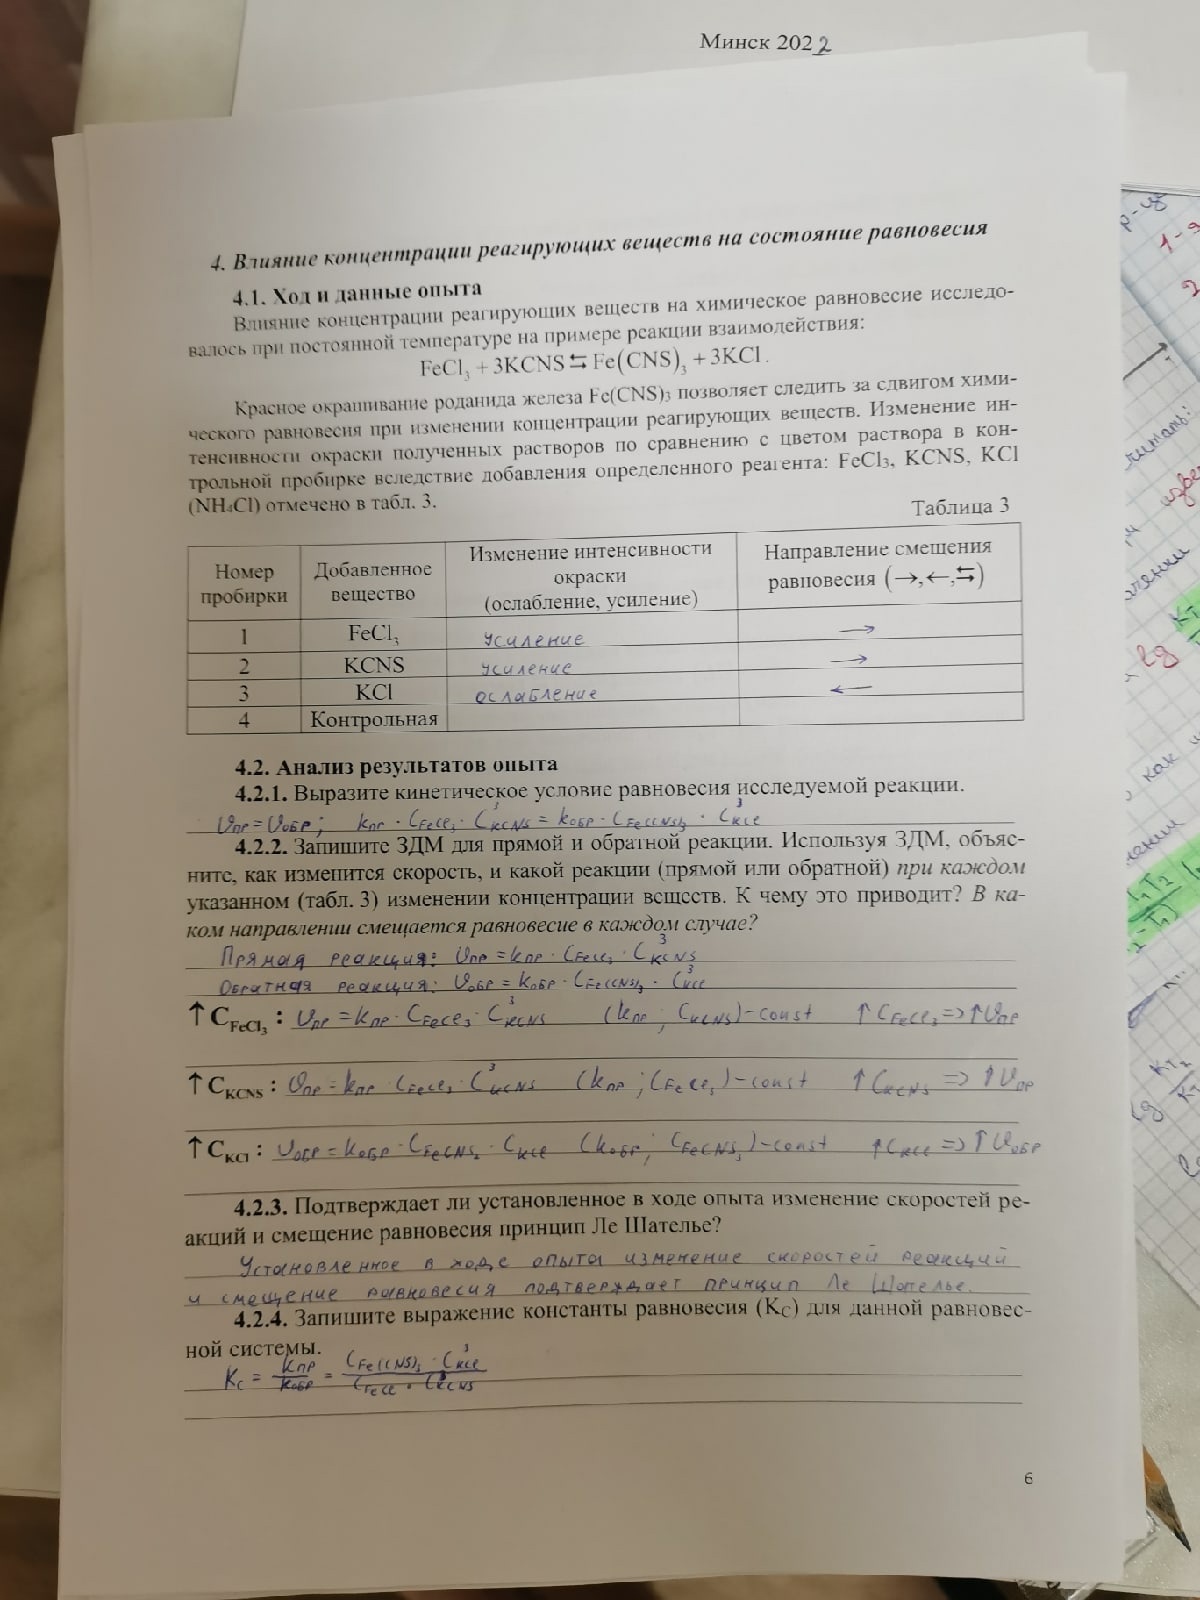 Минск 2022
4. Влияние концентрации реагирующих веществ на состояние равновесия
4.1. Ход и данные опыта
Влияние концентрации реагирующих веществ на химическое равновесие исследо-
валось при постоянной температуре на примере реакции взаимодействия:
FeCl₃ + 3KCNS ⇆ Fe(CNS)₃ + 3KCl.
Красное окрашивание роданида железа Fe(CNS)₃ позволяет следить за сдвигом хими-
ческого равновесия при изменении концентрации реагирующих веществ. Изменение ин-
тенсивности окраски полученных растворов по сравнению с цветом раствора в кон-
трольной пробирке вследствие добавления определенного реагента: FeCl₃, KCNS, KCl
(NH₄Cl) отмечено в табл. 3.
Таблица 3
Номер пробирки | Добавленное вещество | Изменение интенсивности окраски (ослабление, усиление) | Направление смещения равновесия (→,←,⇆)
1 | FeCl₃ | усиление | →
2 | KCNS | усиление | →
3 | KCl | ослабление | ←
4 | Контрольная
4.2. Анализ результатов опыта
4.2.1. Выразите кинетическое условие равновесия исследуемой реакции.
υпр = υобр; kпр · CFeCl₃ · C³KCNS = kобр · CFe(CNS)₃ · C³KCl
4.2.2. Запишите ЗДМ для прямой и обратной реакции. Используя ЗДМ, объяс-
ните, как изменится скорость, и какой реакции (прямой или обратной) при каждом
указанном (табл. 3) изменении концентрации веществ. К чему это приводит? В ка-
ком направлении смещается равновесие в каждом случае?
Прямая реакция: υпр = kпр · CFeCl₃ · C³KCNS
Обратная реакция: υобр = kобр · CFe(CNS)₃ · C³KCl
↑ CFeCl₃ : υпр = kпр · CFeCl₃ · C³KCNS (kпр ; CKCNS) – const ↑ CFeCl₃ => ↑ υпр
↑ CKCNS : υпр = kпр · CFeCl₃ · C³KCNS (kпр ; CFeCl₃) – const ↑ CKCNS => ↑ υпр
↑ CKCl : υобр = kобр · CFeCNS₃ · CKCl (kобр ; CFeCNS₃) – const ↑ CKCl => ↑ υобр
4.2.3. Подтверждает ли установленное в ходе опыта изменение скоростей ре-
акций и смещение равновесия принцип Ле Шателье?
Установленное в ходе опыта изменение скоростей реакций
и смещение равновесия подтверждает принцип Ле Шателье.
4.2.4. Запишите выражение константы равновесия (KC) для данной равновес-
ной системы.
Kc = kпр / kобр = CFe(CNS)₃ · C³KCl / CFeCl · C³KCNS
6